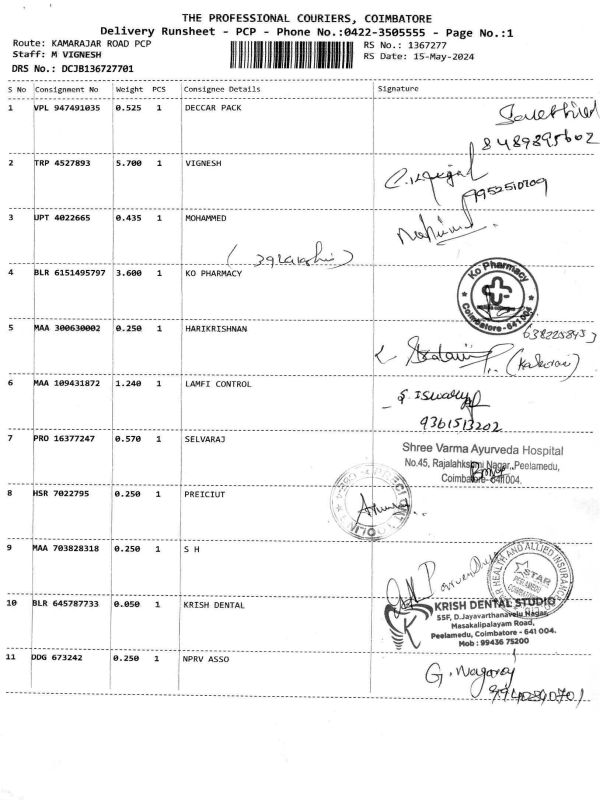 THE PROFESSIONAL COURIERS, COIMBATORE
Delivery Runsheet - PCP - Phone No.:0422-3505555 - Page No.:1
Route: KAMARAJAR ROAD PCP
RS No.: 1367277
Staff: M VIGNESH
RS Date: 15-May-2024
DRS No.: DCJB136727701
S No Consignment No Weight PCS Consignee Details Signature
1 VPL 947491035 0.525 1 DECCAR PACK
8489895602
2 TRP 4527893 5.700 1 VIGNESH
9952510209
3 UPT 4022665 0.435 1 MOHAMMED
4 BLR 6151495797 3.600 1 KO PHARMACY
Ko Pharmacy
Coimbatore-641 004
5 MAA 300630002 0.250 1 HARIKRISHNAN
6 MAA 109431872 1.240 1 LAMFI CONTROL
9361513202
7 PRO 16377247 0.570 1 SELVARAJ
Shree Varma Ayurveda Hospital
No.45, Rajalahkshmi Nagar, Peelamedu,
Coimbatore- 641004.
8 HSR 7022795 0.250 1 PREICIUT
9 MAA 703828318 0.250 1 S H
HEALTH AND ALLIED INSURANCE
STAR
10 BLR 645787733 0.050 1 KRISH DENTAL
KRISH DENTAL STUDIO
55F, D.Jayavarthanavelu Nagar,
Masakalipalayam Road,
Peelamedu, Coimbatore - 641 004.
Mob : 99436 75200
11 DDG 673242 0.250 1 NPRV ASSO
G. Nagaraj